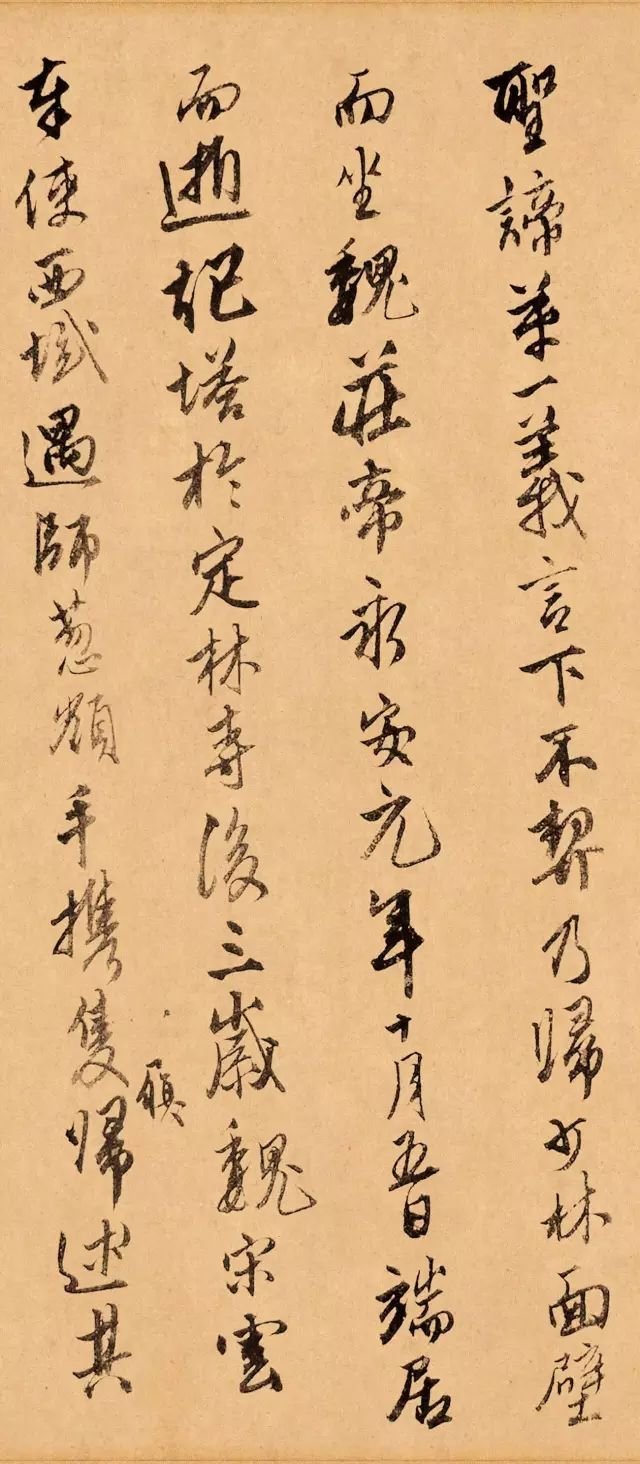 聖諦第一義言下不契乃歸少林面壁
而坐魏莊帝永安元年十月五日端居
而逝起塔於定林寺後三歲魏宋雲
奉使西域遇師葱嶺手攜隻歸述其